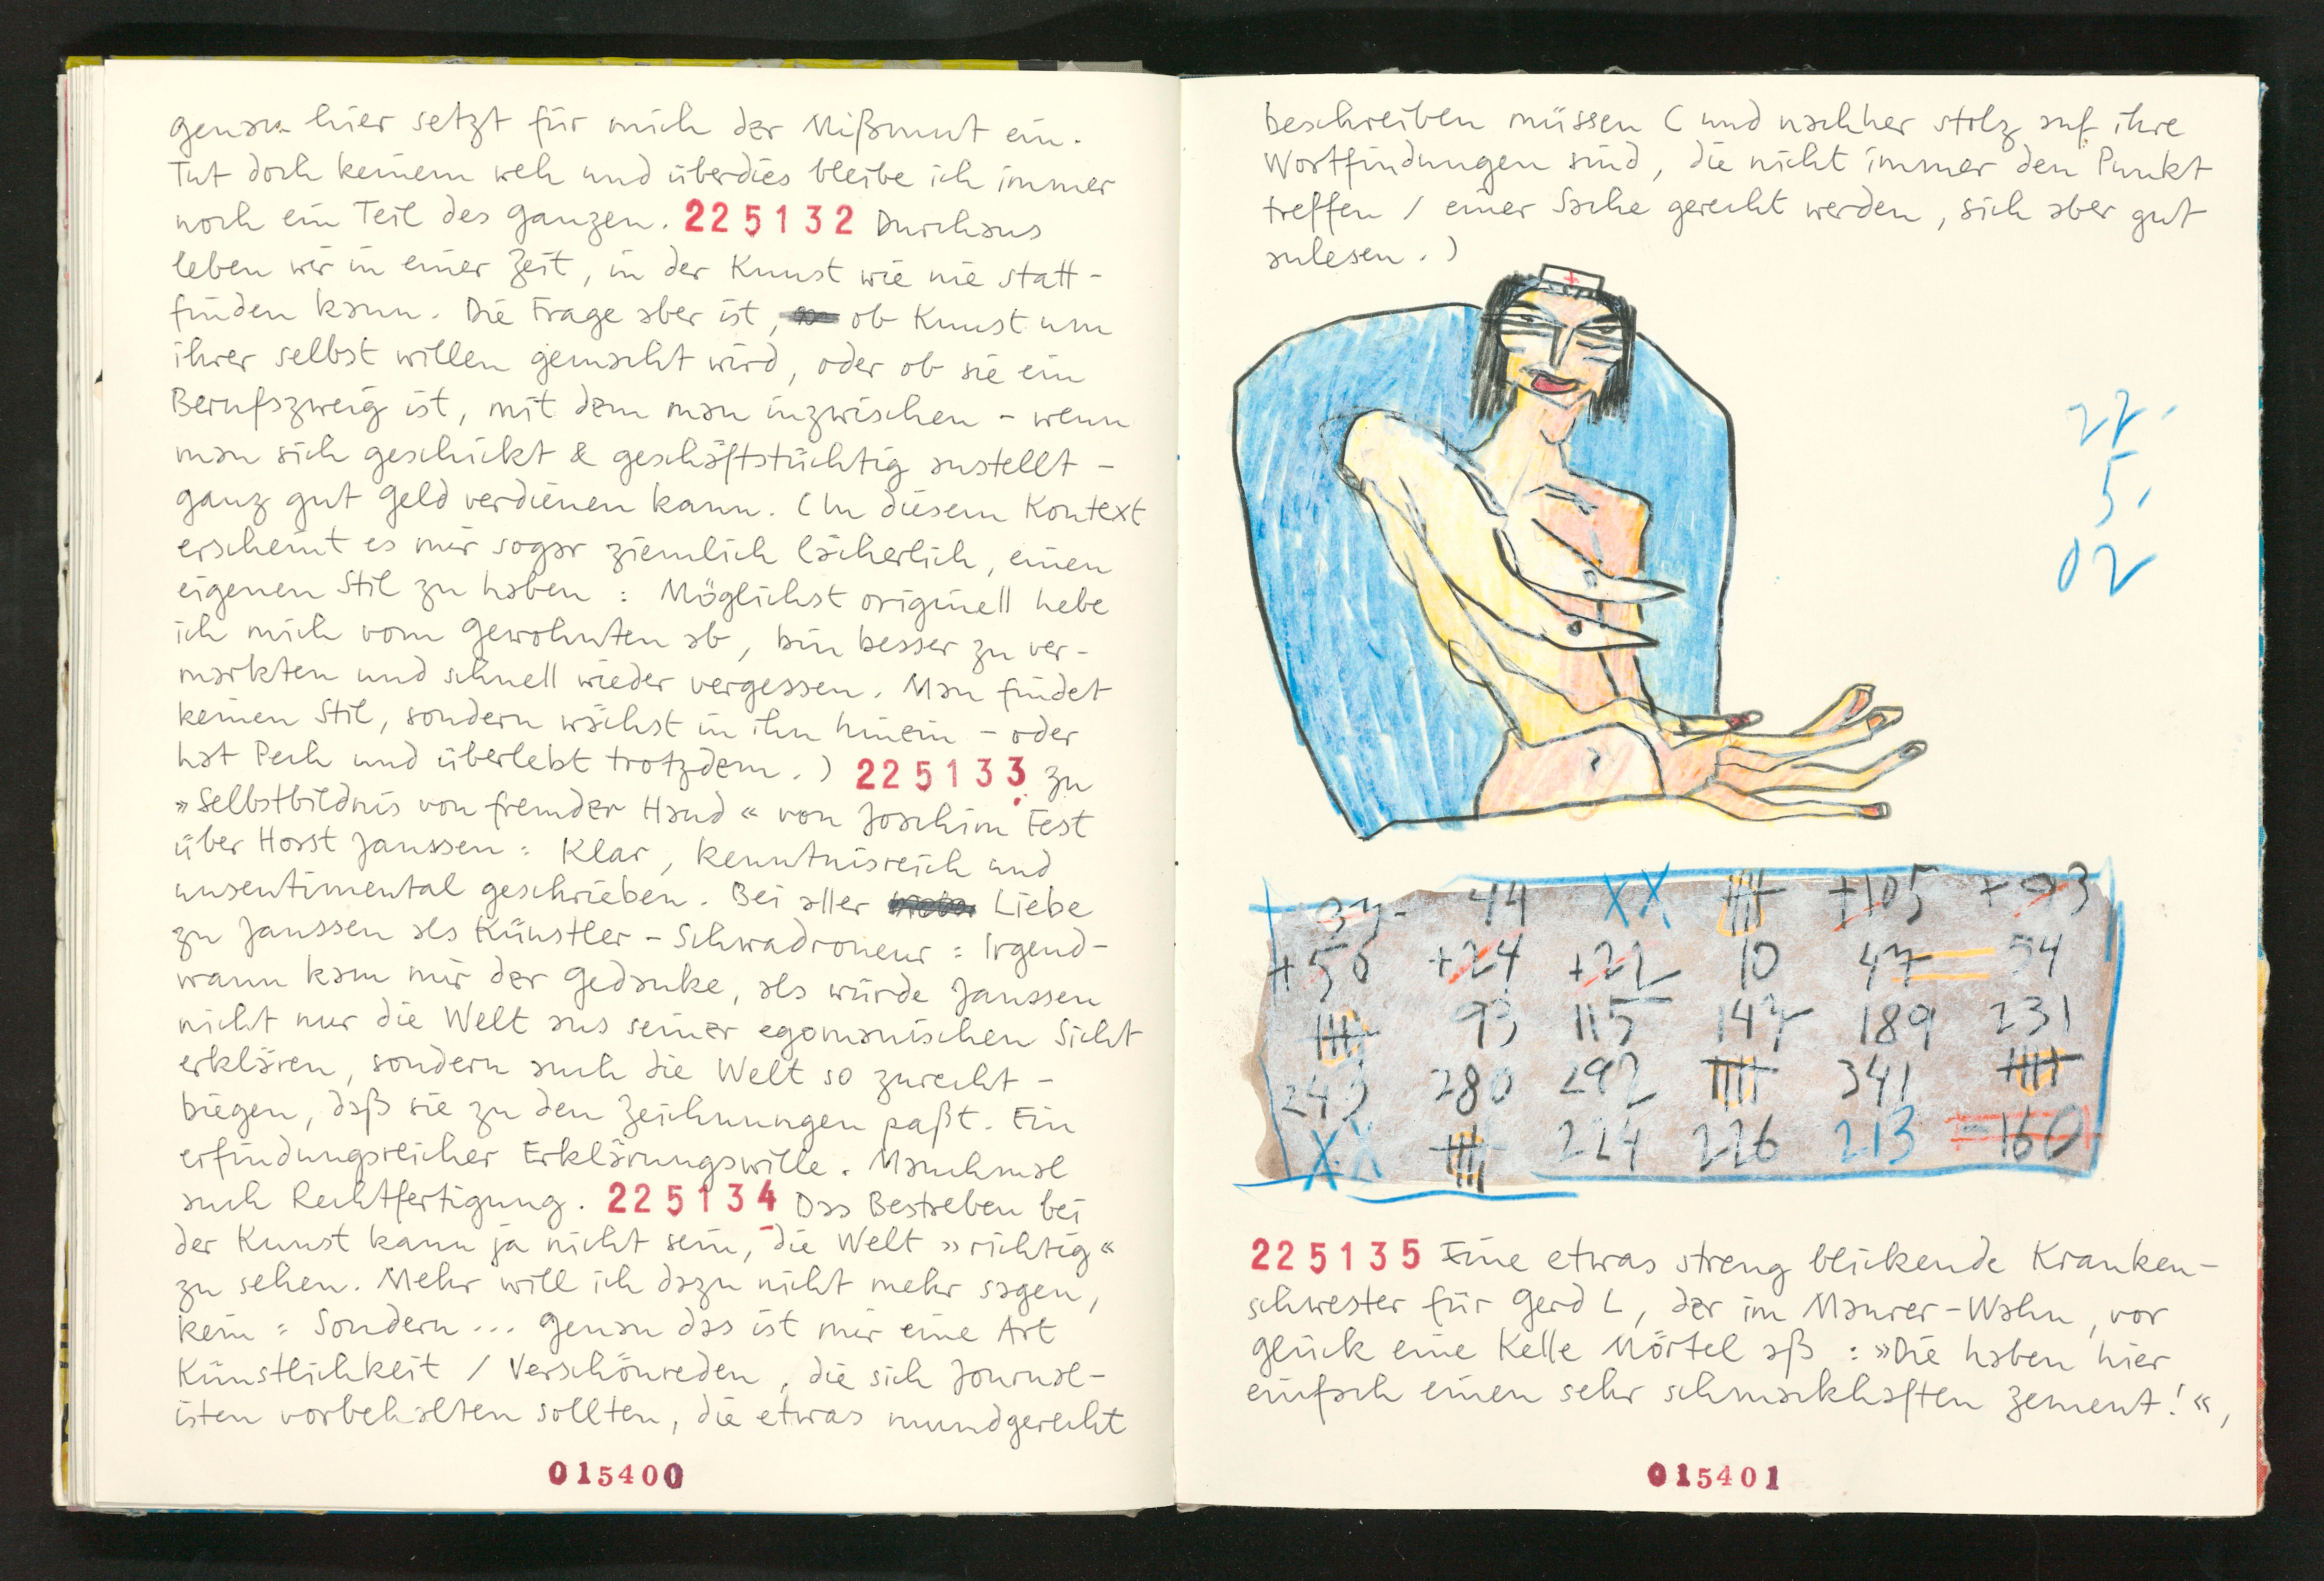 genau hier setzt für mich der Mißmut ein.
Tut doch keinem weh und überdies bleibe ich immer
noch ein Teil des Ganzen. 225132 Durchaus
leben wir in einer Zeit, in der Kunst wie nie statt-
finden kann. Die Frage aber ist, ob Kunst um
ihrer selbst willen gemacht wird, oder ob sie ein
Berufszweig ist, mit dem man inzwischen - wenn
man sich geschickt & geschäftstüchtig anstellt -
ganz gut Geld verdienen kann. (In diesem Kontext
erscheint es mir sogar ziemlich lächerlich, einen
eigenen Stil zu haben : Möglichst originell hebe
ich mich vom Gewohnten ab, bin besser zu ver-
markten und schnell wieder vergessen. Man findet
keinen Stil, sondern wächst in ihn hinein - oder
hat Pech und überlebt trotzdem.) 225133 Zu
»Selbstbildnis von fremder Hand« von Joachim Fest
über Horst Janssen : Klar, kenntnisreich und
unsentimental geschrieben. Bei aller Liebe
zu Janssen als Künstler-Schwadroneur : Irgend-
wann kam mir der Gedanke, als würde Janssen
nicht nur die Welt aus seiner egomanischen Sicht
erklären, sondern auch die Welt so zurecht-
biegen, daß sie zu den Zeichnungen paßt. Ein
erfindungsreicher Erklärungswille. Manchmal
auch Rechtfertigung. 225134 Das Bestreben bei
der Kunst kann ja nicht sein, die Welt »richtig«
zu sehen. Mehr will ich dazu nicht mehr sagen,
kein : Sondern... Genau das ist mir eine Art
Künstlichkeit / Verschönreden, die sich Journal-
isten vorbehalten sollten, die etwas mundgerecht
015400
beschreiben müssen (und nachher stolz auf ihre
Wortfindungen sind, die nicht immer den Punkt
treffen / einer Sache gerecht werden, sich aber gut
anlesen.)
22.
5.
02
37 44 XX +105 +03
+50 +24 +22 10 47 54
93 115 147 189 231
243 280 292 341
XX 224 226 213 160
225135 Eine etwas streng blickende Kranken-
schwester für Gerd L, der im Maurer-Wahn, vor
Glück eine Kelle Mörtel aß : »Die haben hier
einfach einen sehr schmackhaften Zement!«,
015401